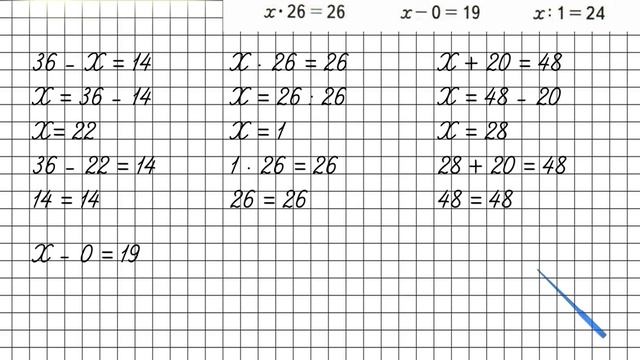 x · 26 = 26 x – 0 = 19 x : 1 = 24
36 - X = 14 X · 26 = 26 X + 20 = 48
X = 36 - 14 X = 26 : 26 X = 48 - 20
X = 22 X = 1 X = 28
36 - 22 = 14 1 · 26 = 26 28 + 20 = 48
14 = 14 26 = 26 48 = 48
X - 0 = 19